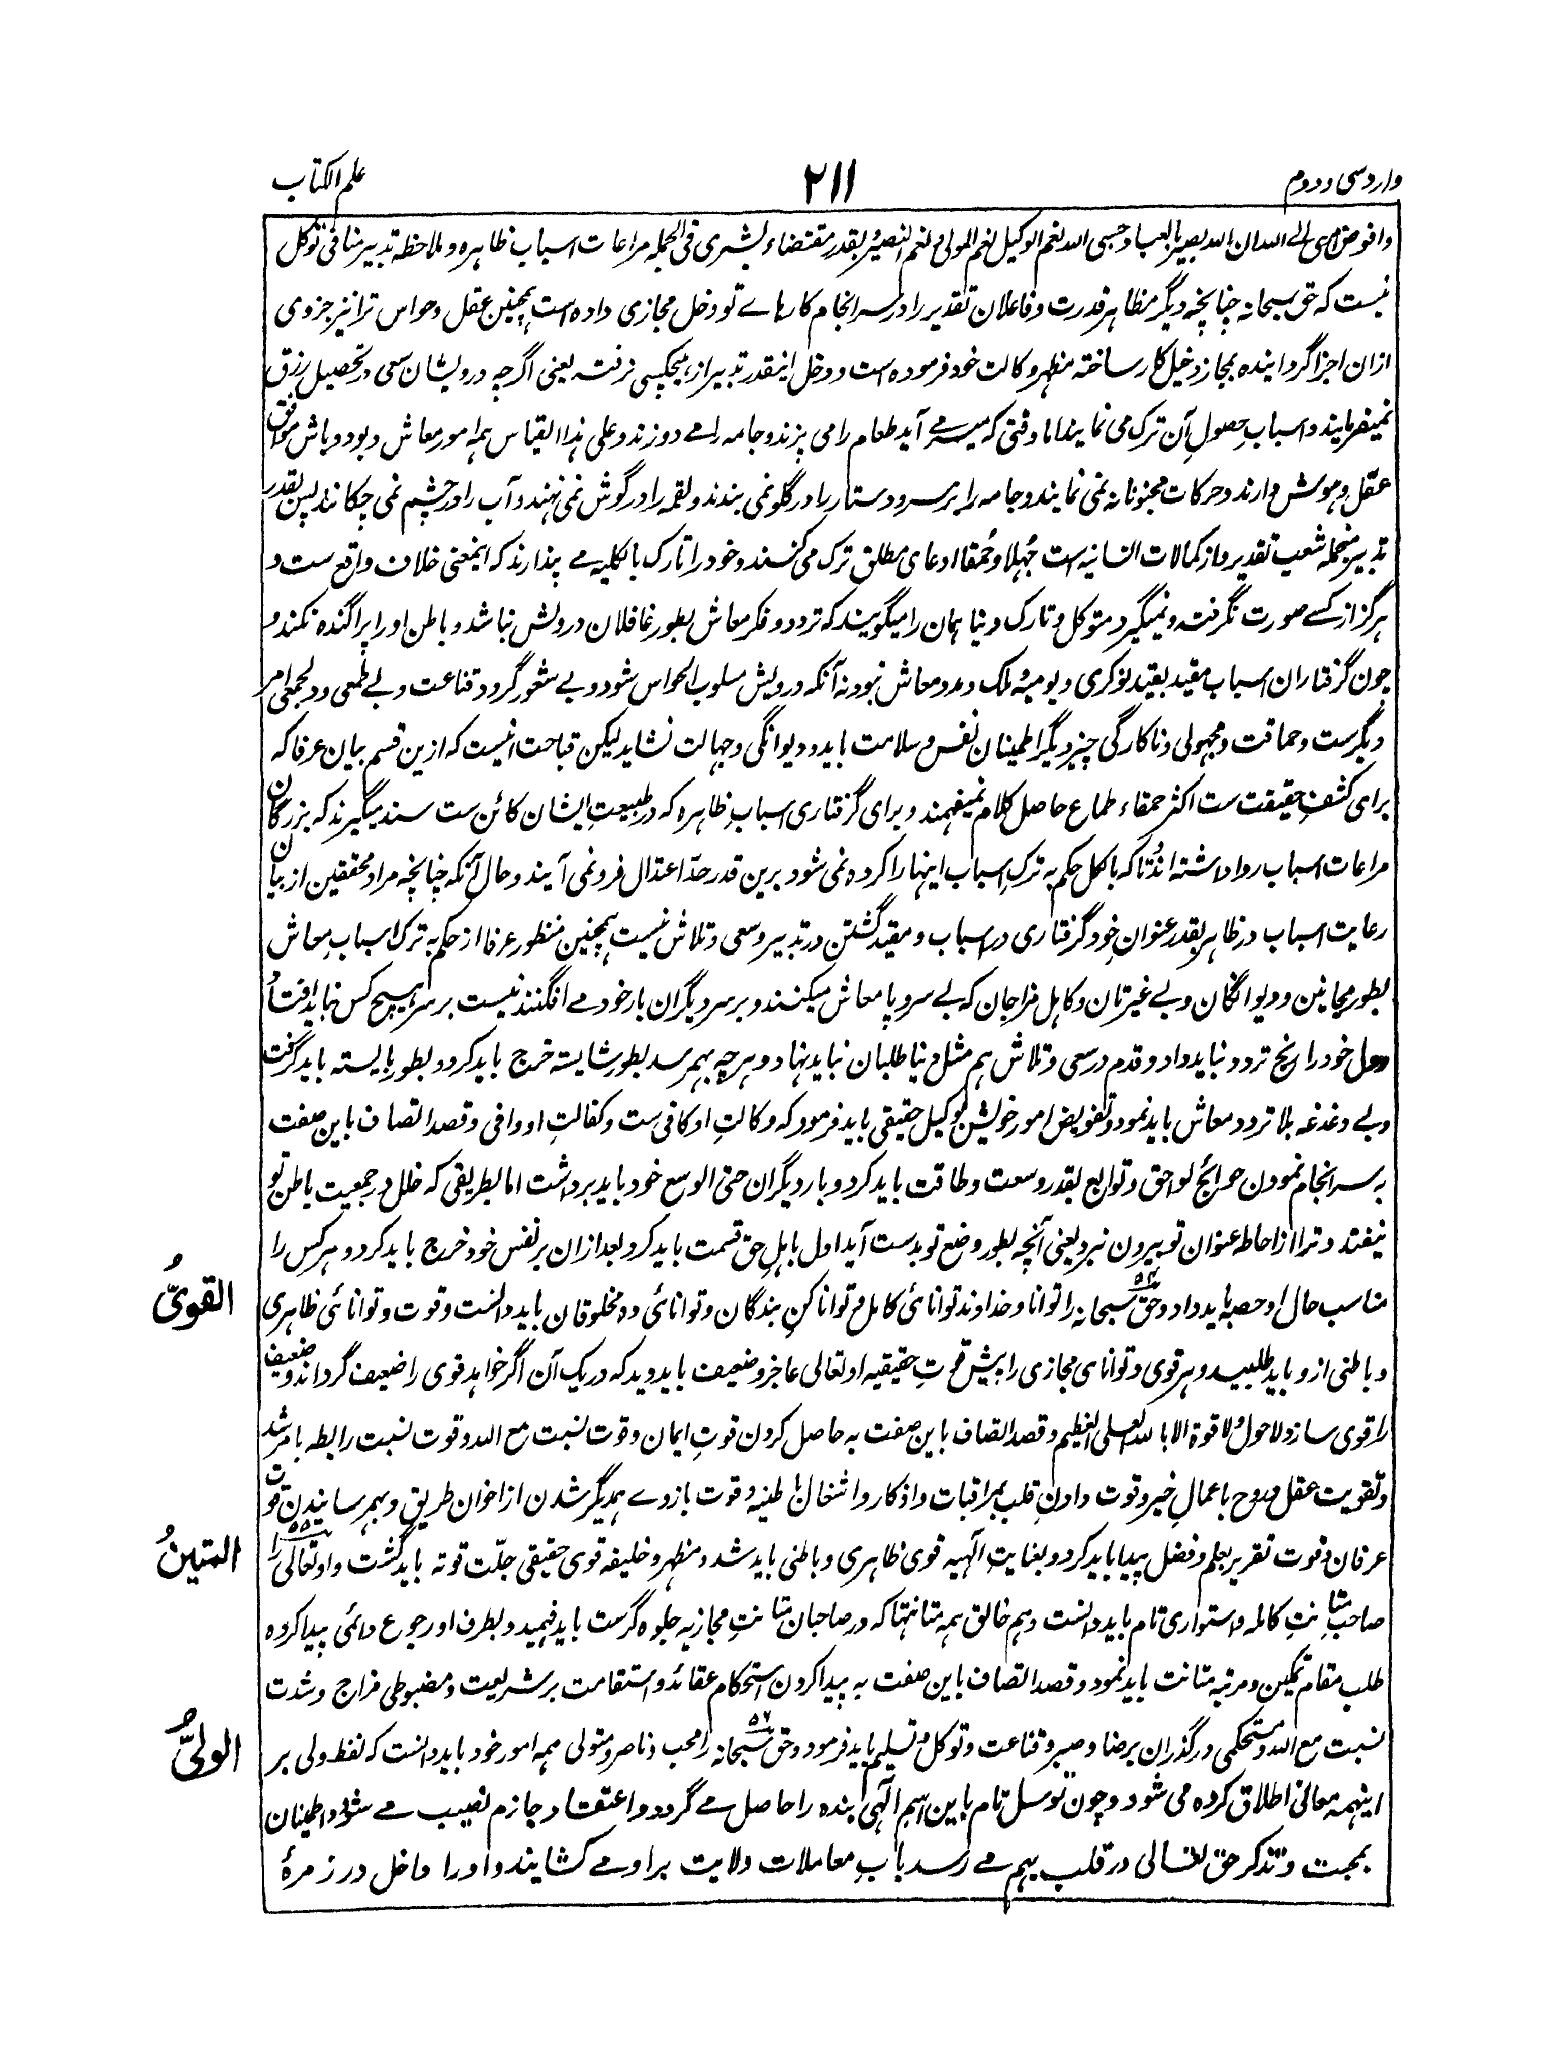 وارد سی و دوم
۲۱۱
علم الکتاب
وافوض امری الے الله ان الله بصیر بالعباد وحسبی الله نعم الوکیل نعم المولی ونعم النصیر بقدر مقتضاء بشری فی الجمله مراعات اسباب ظاهره و ملاحظه تدبیر منافی توکل
نیست که حق سبحانه چنانچه دیگر مظاهر قدرت و فاعلان تقدیر را در سرانجام کارهاے تو دخل مجازی داده است همچنین عقل و حواس ترا نیز جزوی
ازان اجزا گردانیده بمجاز دخیل کار ساخته مظهر وکالت خود فرموده است و دخل اینقدر تدبیر از هیچکسی نرفته یعنی اگرچه درویشان سعی در تحصیل رزق
نمیفرمایند و اسبابِ حصولِ آن ترک می نمایند اما وقتی که میسر مے آید طعام را می پزند و جامه را مے دوزند و علی هذا القیاس همه امور معاش و بود و باش موافق
عقل و هوش دارند و حرکات مجنونانه نمی نمایند و جامه را بر سر و دستار را در گلو نمی بندند و لقمه را در گوش نمی نهند و آب را در چشم نمی چکانند پس بقدر
تدبیر منجمله شعب تقدیر و از کمالات انسانیه است جُهلا و حُمقا ادعای مطلق ترک می کنند و خود را تارک بالکلیه مے پندارند که اینمعنی خلاف واقع ست و
هرگز از کسے صورت نگرفته و نمیگیرد متوکل و تارک دنیا همان را میگویند که تردد و فکر معاش بطور غافلان درویش نباشد و باطن او را پراگنده نکند و
چون گرفتاران اسباب مقید بقید نوکری و یومیه و ملک و مدد معاش نبود نه آنکه درویش مسلوب الحواس شود و بے شعور گردد قناعت و بے طمعی و دلجمعی امر
دیگرست و حماقت و مجهولی و ناکارگی چیز دیگر اطمینان نفس و سلامت باید و دیوانگی و جهالت نشاید لیکن قباحت اینست که ازین قسم بیان عرفا که
برای کشفِ حقیقت ست اکثر حمقاء طماع حاصل کلام نمیفهمند و برای گرفتاری اسبابِ ظاهره که در طبیعتِ ایشان کائن ست سند میگیرند که بزرگان
مراعات اسباب روا داشته اند تا که بالکل حکم به ترکِ اسباب اینها را کرده نمی شود برین قدر حدّ اعتدال فرو نمی آیند و حال آنکه چنانچه مراد محققین از بیان
رعایت اسباب در ظاهر بقدر عنوانِ خود گرفتاری در اسباب و مقید گشتن در تدبیر و سعی و تلاش نیست همچنین منظور عرفا از حکم به ترک اسبابِ معاش
بطور مجانین و دیوانگان و بے غیرتان و کاهل مزاجان که بے سر و پا معاش میکنند و بر سر دیگران بار خود مے افگنند نیست بر سر هیچ کس نباید افتاد
و دل خود را رنج تردد نباید داد و قدم در سعی و تلاش هم مثل دنیا طلبان نباید نهاد و هرچه بهمرسد بطور شایسته خرج باید کرد و بطور بایسته باید گرفت
و بے دغدغه بلا تردد معاش باید نمود و تفویض امور خویش بوکیل حقیقی باید فرمود که وکالتِ او کافی ست و کفالتِ او وافی و قصد اتصاف باین صفت
به سرانجام نمودن حوائج لواحق و توابع بقدر وسعت و طاقت باید کرد و بار دیگران حتی الوسع خود باید برداشت اما بطریقی که خلل در جمعیت باطن تو
نیفتد و ترا از احاطه عنوان تو بیرون نبرد یعنی آنچه بطور وضع تو بدست آید اول باهلِ حق قسمت باید کرد بعد ازان بر نفس خود خرج باید کرد و هر کس را
مناسب حال او حصه باید داد و حق سبحانه را توانا و خداوند توانائی کامل و توانا کنِ بندگان و توانائی ده مخلوقان باید دانست و قوت و توانائی ظاهری
القویُّ
۵۴
و باطنی ازو باید طلبید و هر قوی و توانای مجازی را پیش قوتِ حقیقیه او تعالی عاجز و ضعیف باید دید که در یک آن اگر خواهد قوی را ضعیف گرداند و ضعیف
را قوی سازد ولا حول ولا قوة الا بالله العلی العظیم و قصد اتصاف باین صفت به حاصل کردن قوتِ ایمان و قوت نسبت مع الله و قوت نسبت رابطه با مرشد
و تقویت عقل و روح باعمالِ خیر و قوت دادنِ قلب بمراقبات و اذکار و اشغال باطنیه و قوت بازوے همدیگر شدن از اخوان طریق و بهم رسانیدن قوت
عرفان و قوت تقریر بعلم و فضل پیدا باید کرد و بعنایت الهیه قوی ظاهری و باطنی باید شد و مظهر و خلیفه قوی حقیقی جلّت قوته باید گشت و او تعالی را
المتینُ
۵۵
صاحبِ متانتِ کامله و استواری تام باید دانست و هم خالق همه متانتها که در صاحبان متانتِ مجازیه جلوه گرست باید فهمید و بطرف او رجوع دائمی پیدا کرده
طلب مقام تمکین و مرتبه متانت باید نمود و قصد اتصاف باین صفت به پیدا کردن استحکام عقائد و استقامت بر شریعت و مضبوطی مزاج و شدت
نسبت مع الله و مستحکمی در گذران برضا و صبر و قناعت و توکل و تسلیم باید فرمود و حق سبحانه را محب و ناصر و متولی همه امور خود باید دانست که لفظ ولی بر
الولیُّ
۵۶
اینهمه معانی اطلاق کرده می شود و چون توسل تام باین اسم الهی بنده را حاصل مے گردد و اعتقاد جازم نصیب مے شود و اطمینان
بمحبت و تذکر حق تعالی در قلب بهم مے رسد بابِ معاملات ولایت بر او مے کشایند و او را داخل در زمرهٔ